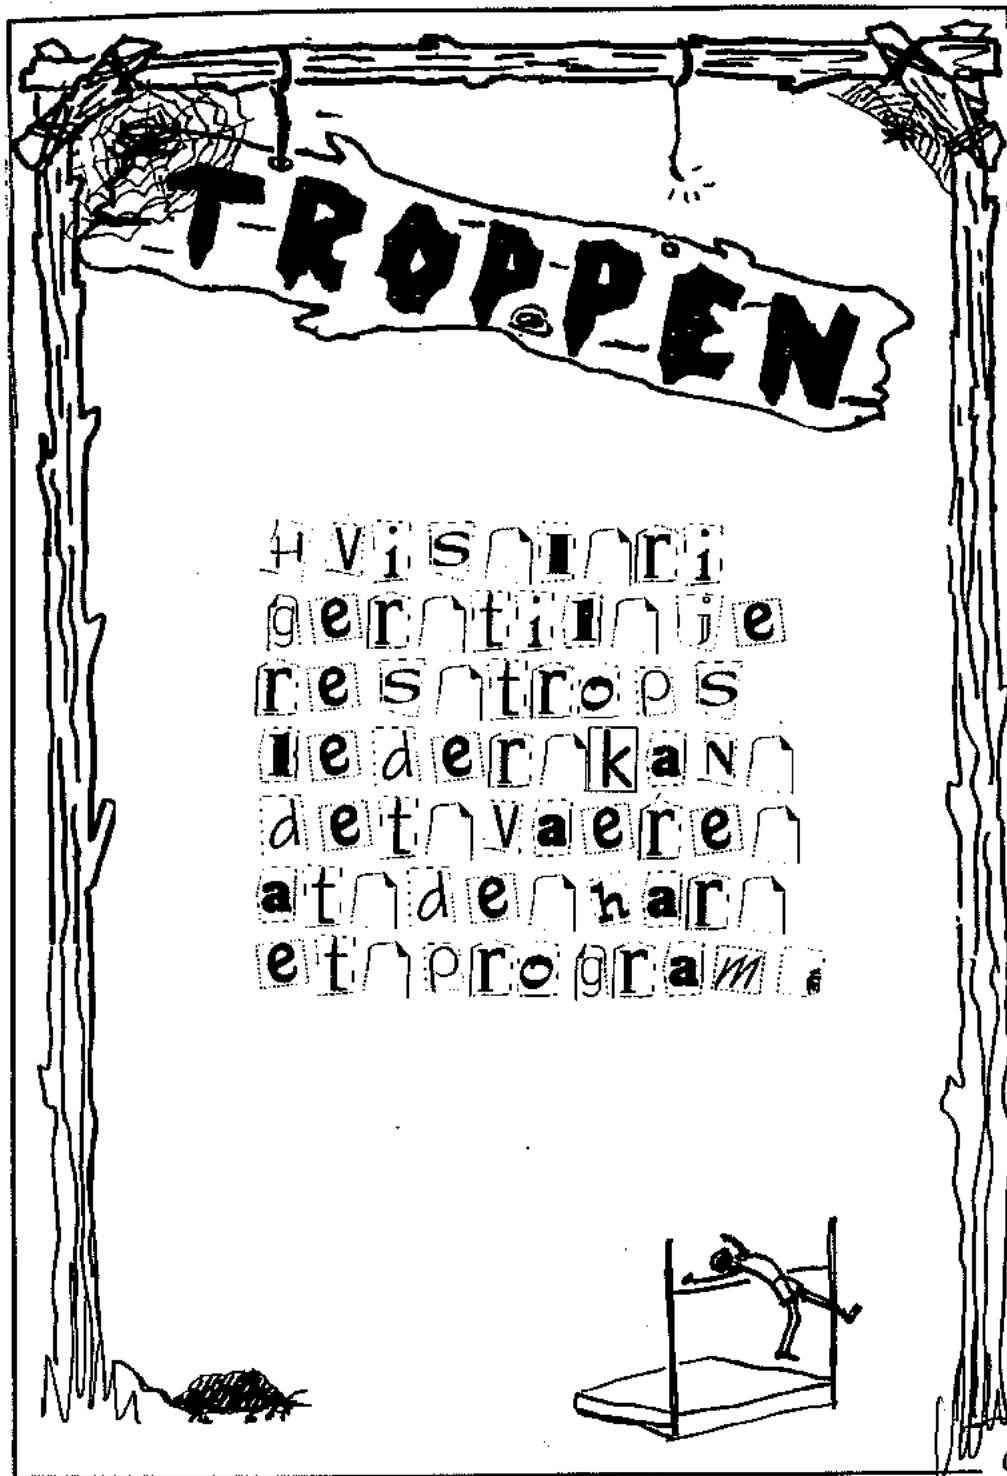 TROPPEN
Hvis I ri
ger til je
res trops
leder kaN
det vaere
at de har
et program